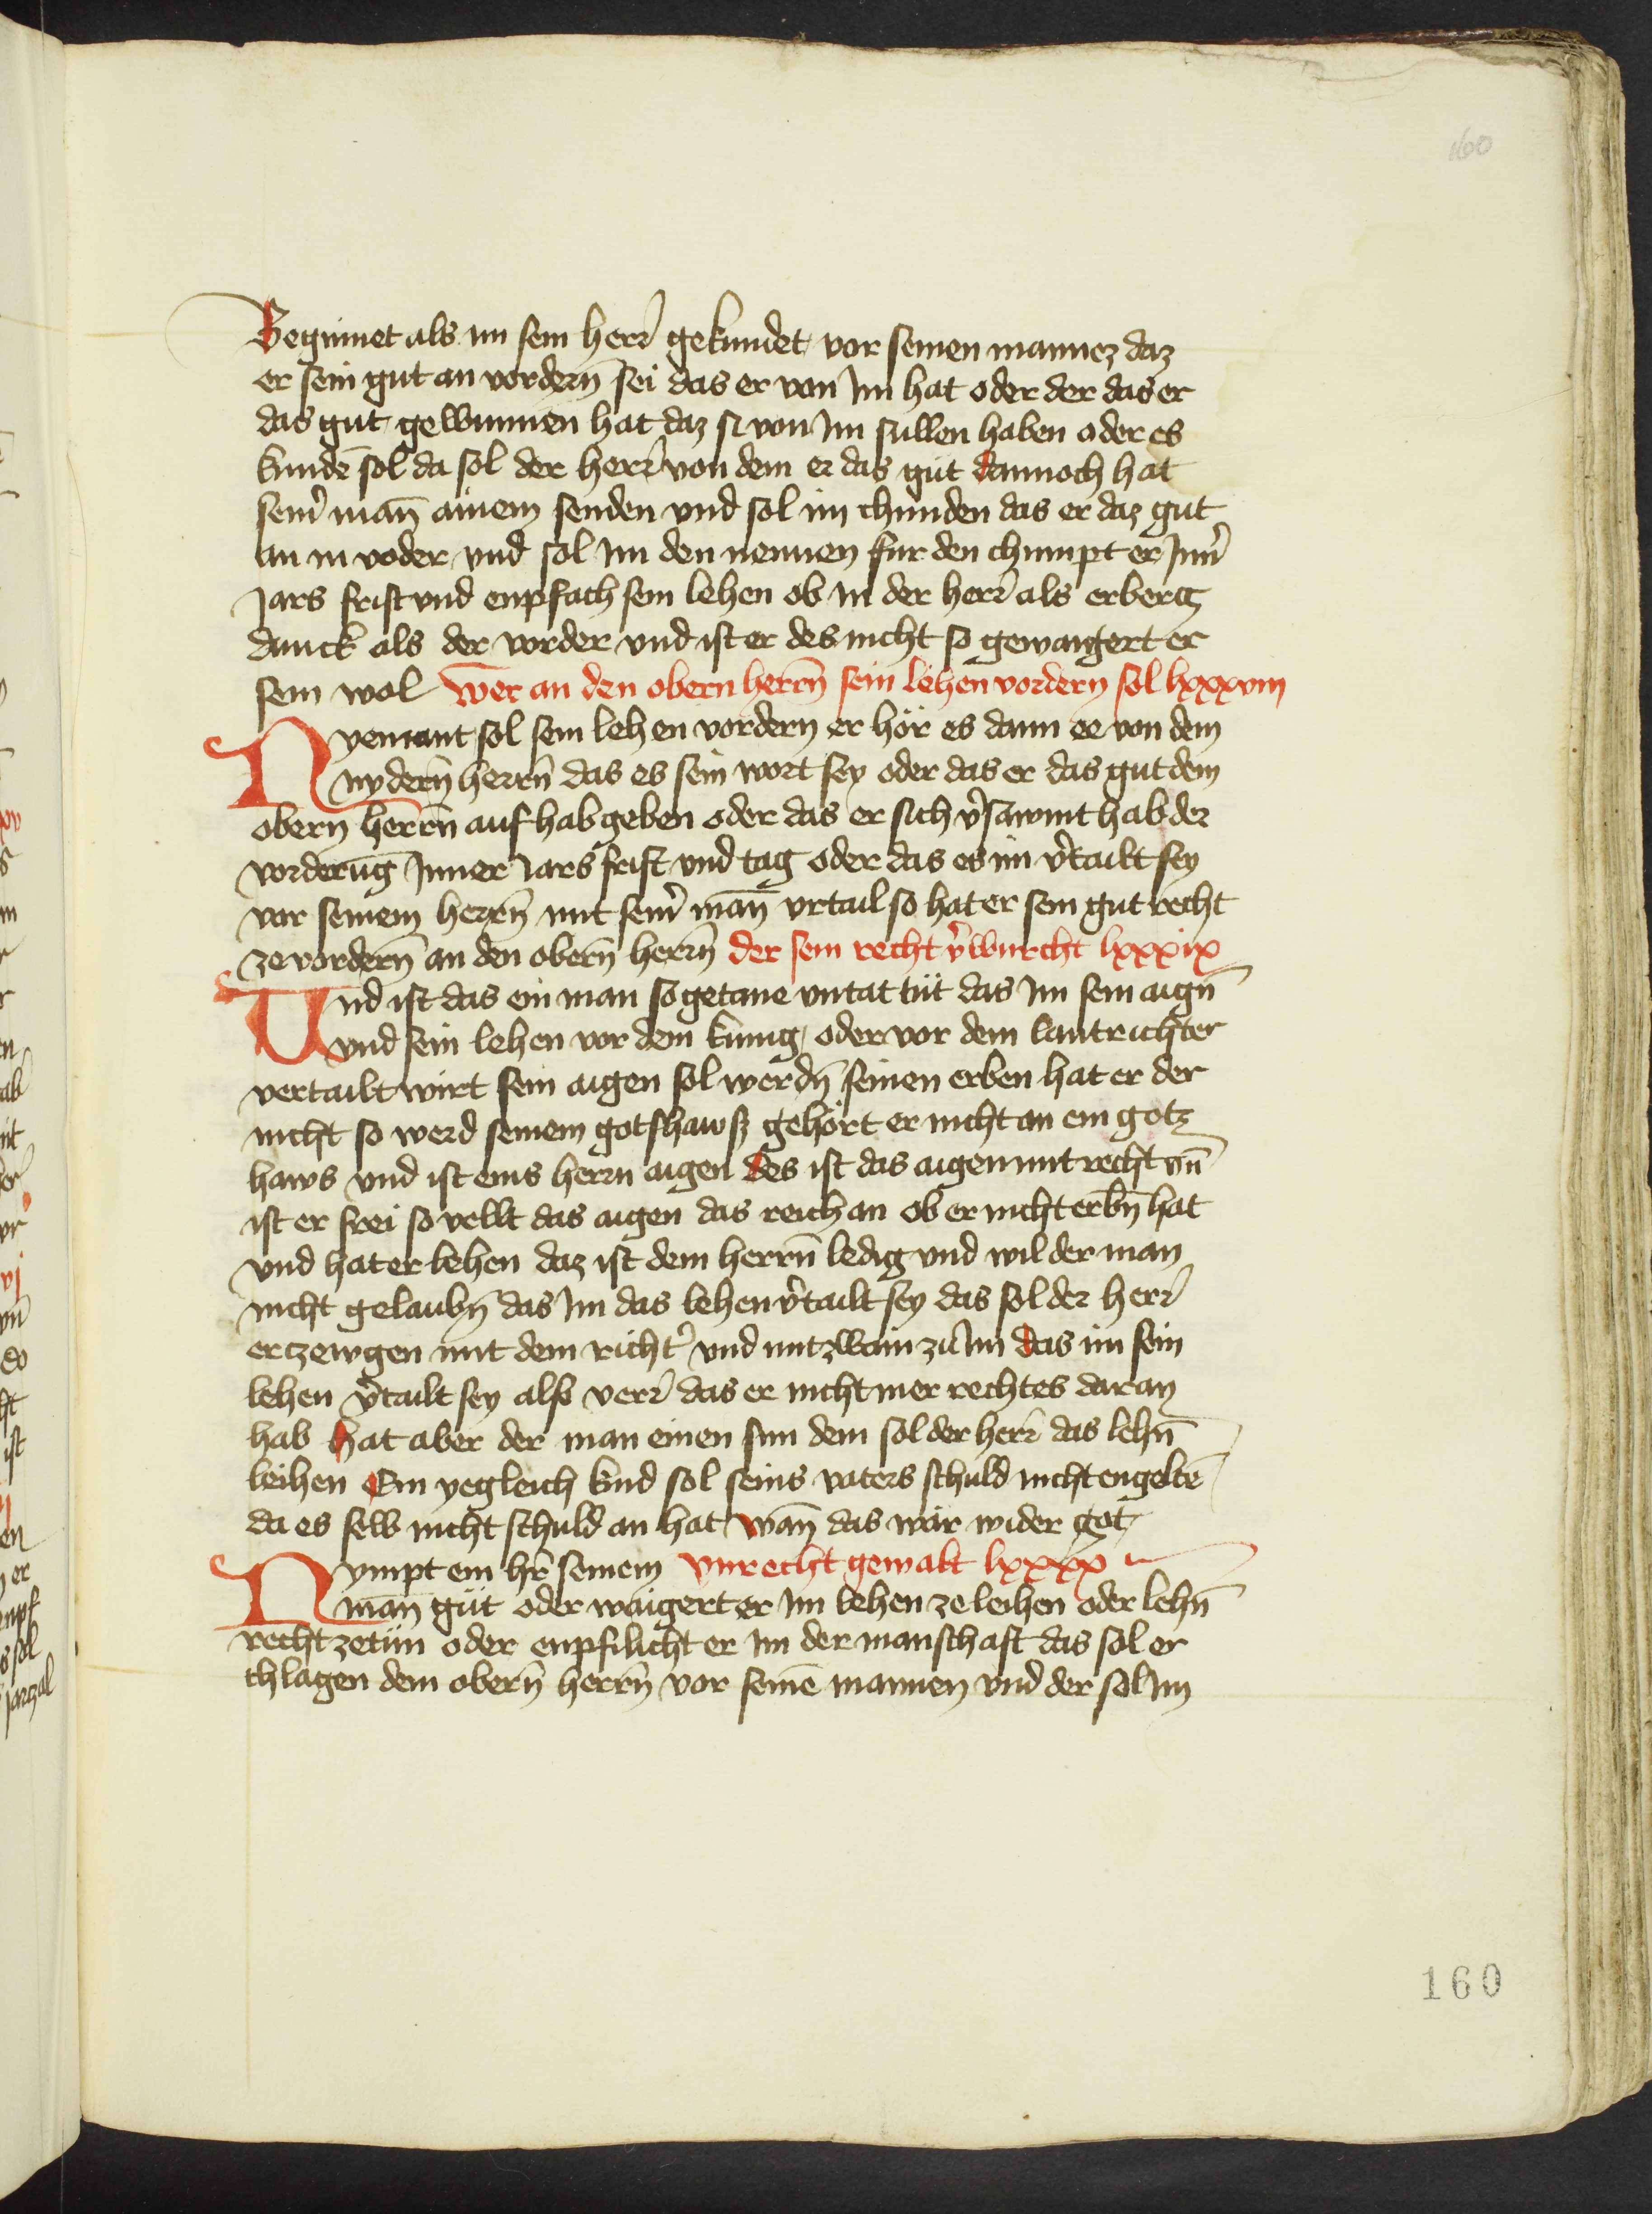 160
Beginnet als im sein herr̄ gekundet vor seinen mannez daz
er sein gut an vordern̄ sei das er von Im hat oder der das er
das gut gewunnen hat daz si von Im sullen haben oder es
kundē sol da sol der herr̄ von dem er das gut dannoch hat
sein̉ man̄ ainem senden vnd sol im chunden das er daz gut
an in voder vnd sol Im den nennen fur den chumpt er Inn̉
Jars frist vnd enpfach sein lehen ob in der herr̄ als erberg
dunck als der vorder vnd ist er des nicht so gewaigert er
sein wol Wer an den obern herrn̄ sein lehen vordern sol lxxxviij
Nyemant sol sein lehen vordern er hör es dann ee von dem
nydern̄ herrn̄ das es sein wort sey oder das er das gut dem
obern herrn̄ auf hab geben oder das er sich v̉sawmt hab der
vorderūg Inner Jars frist vnd tag oder das es im v̉tailt sey
vor seinem herrn̄ mit sein̉ man̄ vrtail so hat er sein gut recht
ze vordern̄ an den obern̄ herrn̄ der sein recht v̉wurcht lxxxix
Und ist das ein man so getane vntat tüt das Im sein aign̄
vnd sein lehen vor dem kunig oder vor dem lantrichter
vertailt wirt sein aigen sol werdn̄ seinen erben hat er der
nicht so werd seinem gotshawsz gehört er nicht an ein gotz
haws vnd ist eins herrn aigen des ist das aigen mit recht vn̄
ist er frei so vellt das aigen das reich an ob er nicht erbn̄ hat
vnd hat er lehen daz ist dem herrn̄ ledig vnd wil der man
nicht gelaubn̄ das Im das lehen v̉tailt sey das sol der herr̄
erzewgen mit dem richt̉ vnd mit zwain zu Im das im sein
lehen v̉tailt sey also verr̄ das er nicht mer rechtes daran
hab hat aber der man einen sun dem sol der herr̄ das lehn̄
leihen Ein yegleich kind sol seins vaters schuld nicht engeltē
da es selb nicht schuld an hat wan̄ das wär wider got
Nympt ein hr̄ seinem vnrecht gewalt lxxxx
man̄ güt oder waigert er Im lehen ze leihen oder lehn̄
recht ze tün oder enpfilicht er im der manschaft das sol er
chlagen dem obern̄ herrn̄ vor seinē mannen vnd der sol im
160